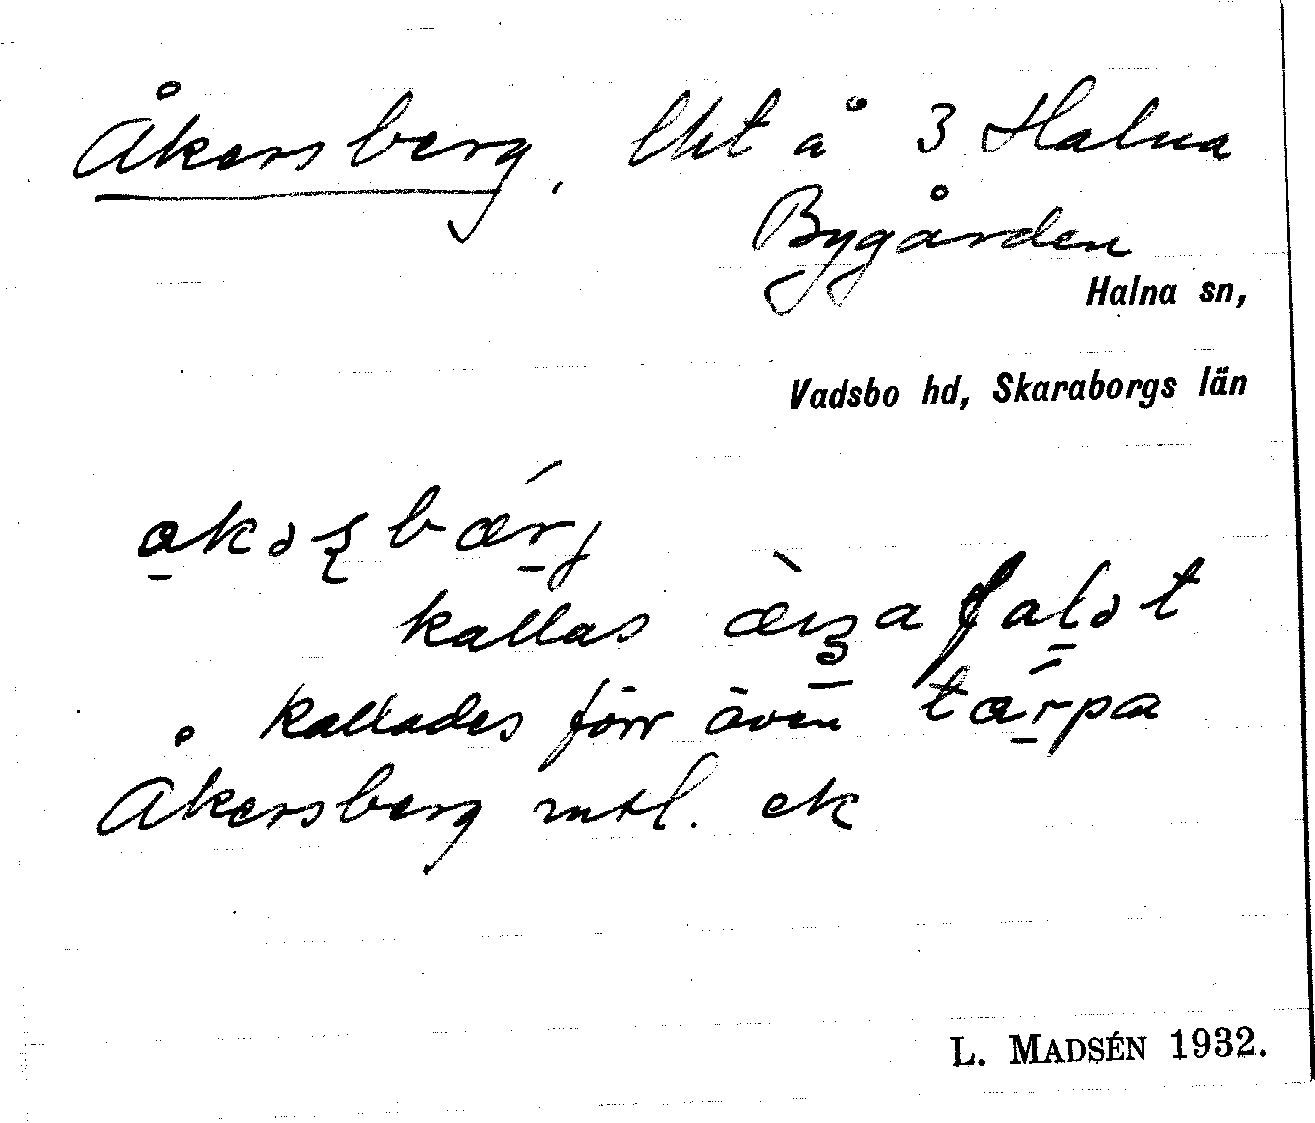 Åkersberg, lht å 3 Halna
Bygården
Halna sn,
Vadsbo hd, Skaraborgs län
kallas
kallades förr även
Åkersberg mtl. ek
L. MADSÉN 1932.